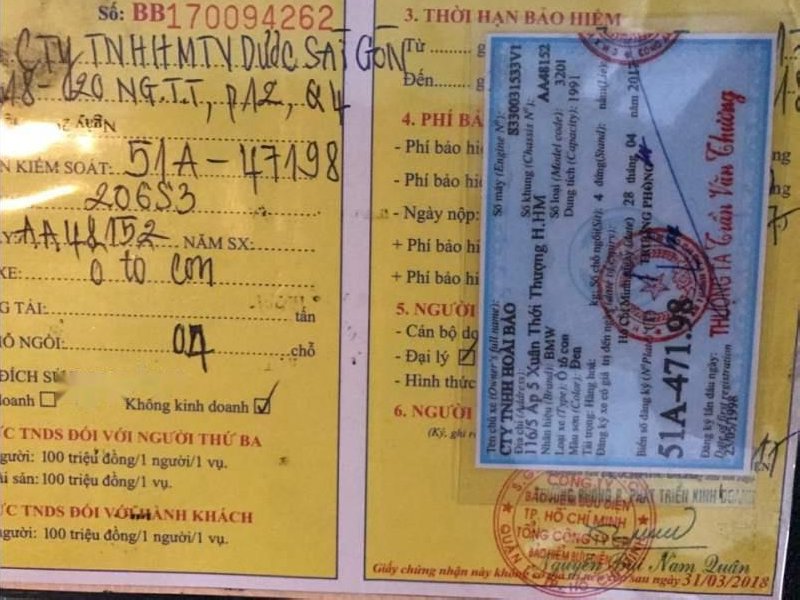 Số: BB170094262
CTY TNHHMTV DƯỢC SÀI GÒN
18-020 NG.T.T, P12, Q4
KIỂM SOÁT: 51A-47198
206S3
AA48152 NĂM SX:
XE: ô tô con
TẢI: tấn
NGỒI: 04 chỗ
ĐÍCH SỬ
doanh Không kinh doanh
TNDS ĐỐI VỚI NGƯỜI THỨ BA
người: 100 triệu đồng/1 người/1 vụ.
sản: 100 triệu đồng/1 vụ.
TNDS ĐỐI VỚI HÀNH KHÁCH
người: 100 triệu đồng/1 người/1 vụ.
3. THỜI HẠN BẢO HIỂM
Từ
Đến
4. PHÍ BẢ
- Phí bảo hi
- Phí bảo hi
- Ngày nộp:
+ Phí bảo hi
+ Phí bảo hi
5. NGƯỜI
- Cán bộ do
- Đại lý
- Hình thức
6. NGƯỜI
(Ký, ghi r
Tên chủ xe (Owner's full name):
CTY TNHH HOÀI BẢO
Địa chỉ (Address):
116/5 Ấp 5 Xuân Thới Thượng H.HM
Nhãn hiệu (Brand): BMW
Loại xe (Type): Ô tô con
Màu sơn (Color): Đen
Tải trọng: Hàng hoá:
Đăng ký xe có giá trị đến ngày
Biển số đăng ký (N° Plate)
51A-471.98
Đăng ký lần đầu ngày:
Date of first registration
23/05/1998
Số máy (Engine N°): S330031533V1
Số khung (Chassis N°): AA48152
Số loại (Model code): 320I
Dung tích (Capacity): 1991
kg; Số chỗ ngồi (Sit): 4 đứng (Stand): nằm (Lie):
Hồ Chí Minh, ngày (date) 28 tháng 04 năm 2017
TRƯỞNG PHÒNG
THƯỢNG TÁ Trần Văn Thương
TRƯỞNG PHÒNG P. PHÁT TRIỂN KINH DOANH
CÔNG TY
BẢO HIỂM BƯU ĐIỆN
TP. HỒ CHÍ MINH
TỔNG CÔNG TY
BẢO HIỂM BƯU ĐIỆN
Nguyễn Bùi Nam Quân
Giấy chứng nhận này không có giá trị nếu cấp sau ngày 31/03/2018